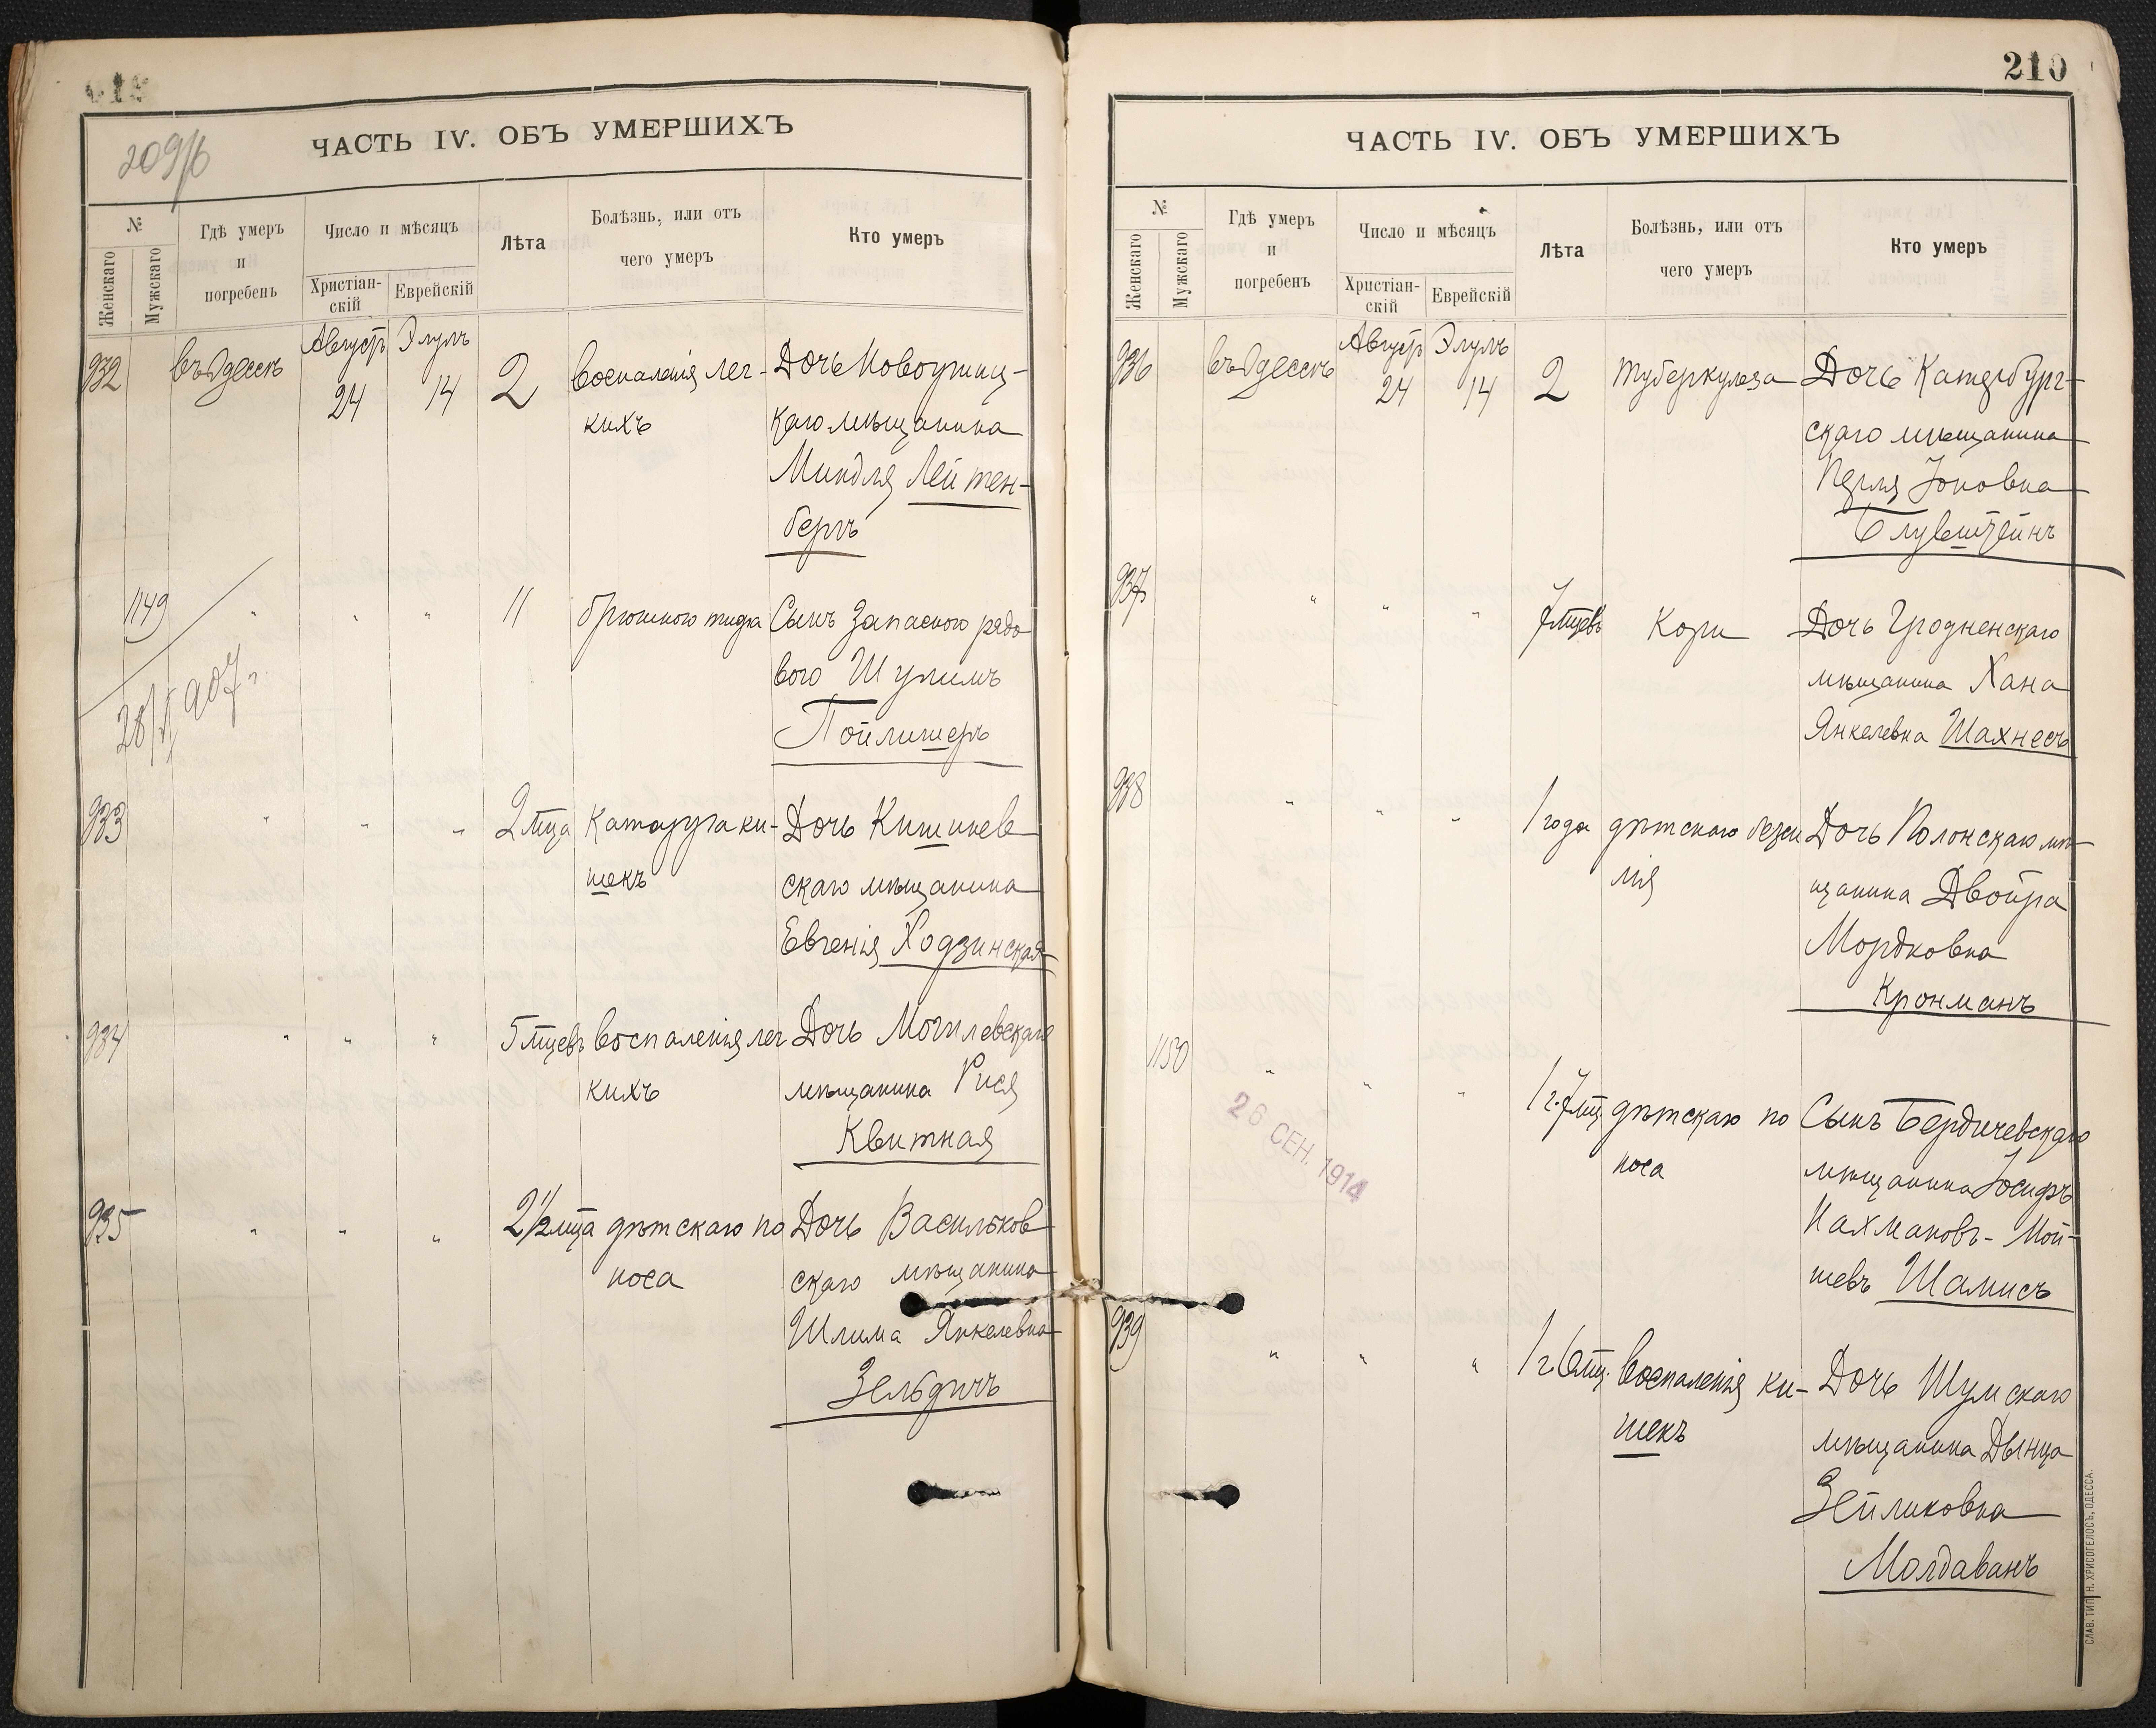 209/б
ЧАСТЬ IV. ОБЪ УМЕРШИХЪ
№
Женскаго
Мужскаго
Гдѣ умеръ
и
погребенъ
Число и мѣсяцъ
Христіан-
скій
Еврейскій
Лѣта
Болѣзнь, или отъ
чего умеръ
Кто умеръ
932 въ Одессѣ Август 24 Элулъ 14 2 воспаленія лег- Дочь Новоушиц-
кихъ каго мѣщанина
Миндля Лейтен-
бергъ
1149 " " " 11 брюшного тифа Сынъ запасного рядо
вого Шулимъ
Пойлишеръ
28/V 907 г.
933 " " " 2 мца Катарра ки- Дочь Кишинев
шекъ скаго мѣщанина
Евгенія Ходзинская
934 " " " 5 мцевъ воспаленія лег Дочь Могилевскаго
кихъ мѣщанина Рися
Квитная
935 " " " 2 1/2 мца дѣтскаго по Дочь Васильков
носа скаго мѣщанина
Шлима Янкелевна
Зельдичъ
210
ЧАСТЬ IV. ОБЪ УМЕРШИХЪ
№
Женскаго
Мужскаго
Гдѣ умеръ
и
погребенъ
Число и мѣсяцъ
Христіан-
скій
Еврейскій
Лѣта
Болѣзнь, или отъ
чего умеръ
Кто умеръ
936 въ Одессѣ Август 24 Элулъ 14 2 туберкулеза Дочь Катербург-
скаго мѣщанина
Перля Іоновна
Блувштейнъ
937 " " " 7 мцевъ Кори Дочь Гродненскаго
мѣщанина Хана
Янкелевна Шахнесъ
938 " " " 1 года дѣтскаго безси Дочь Полонскаго мѣ
лія щанина Двойра
Мордковна
Кронманъ
1150 " " " 1 г. 7 мц. дѣтскаго по Сынъ Бердичевскаго
носа мѣщанина Іосифъ
Нахмановъ-Мой-
шевъ Шамисъ
26 СЕН. 1914
939 " " " 1 г. 6 мц. воспаленія ки- Дочь Шумскаго
шекъ мѣщанина Дынца
Зейликовна
Молдаванъ
СЛАВ. ТИП. Н. ХРИСОГЕЛОСЪ, ОДЕССА.